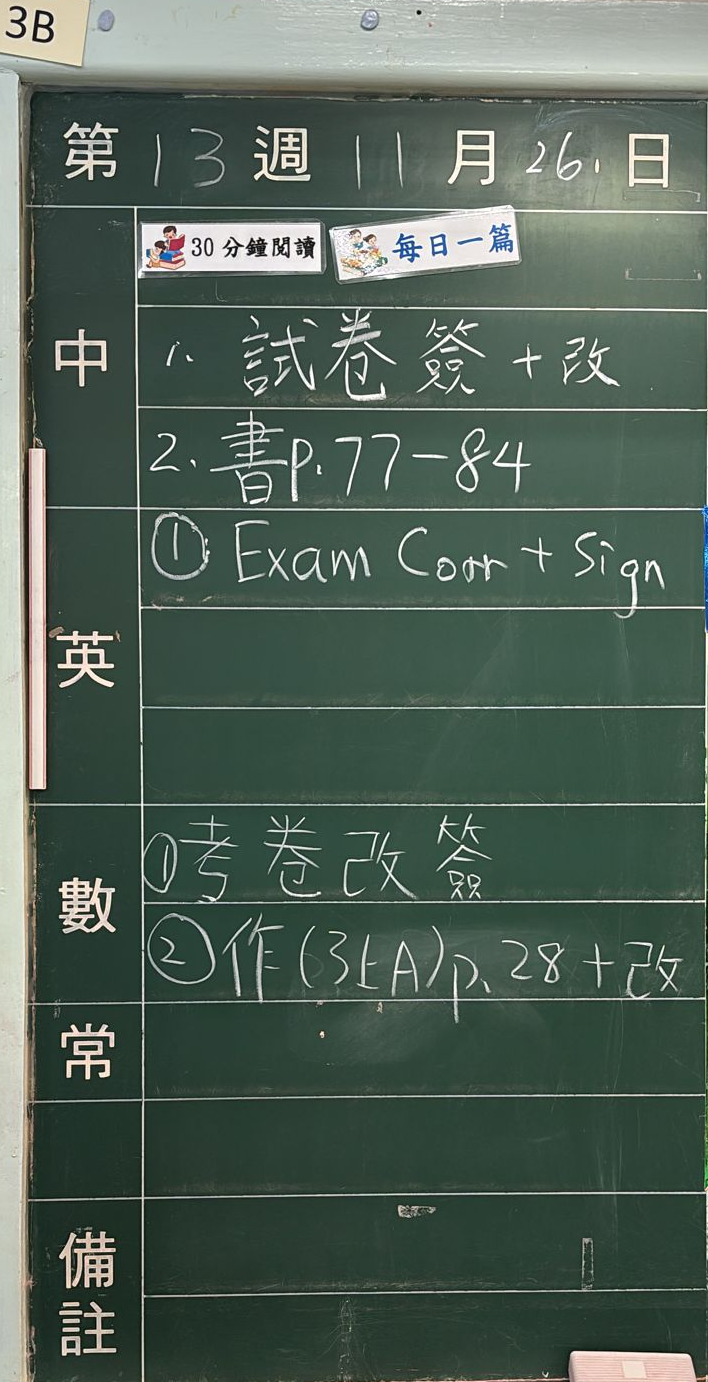 3B
第 13 週 11 月 26. 日
30分鐘閱讀 每日一篇
中
1. 試卷簽+改
2. 書p.77-84
英
① Exam Corr + Sign
數
①考卷改簽
②作(3上A)p.28+改
常
備註